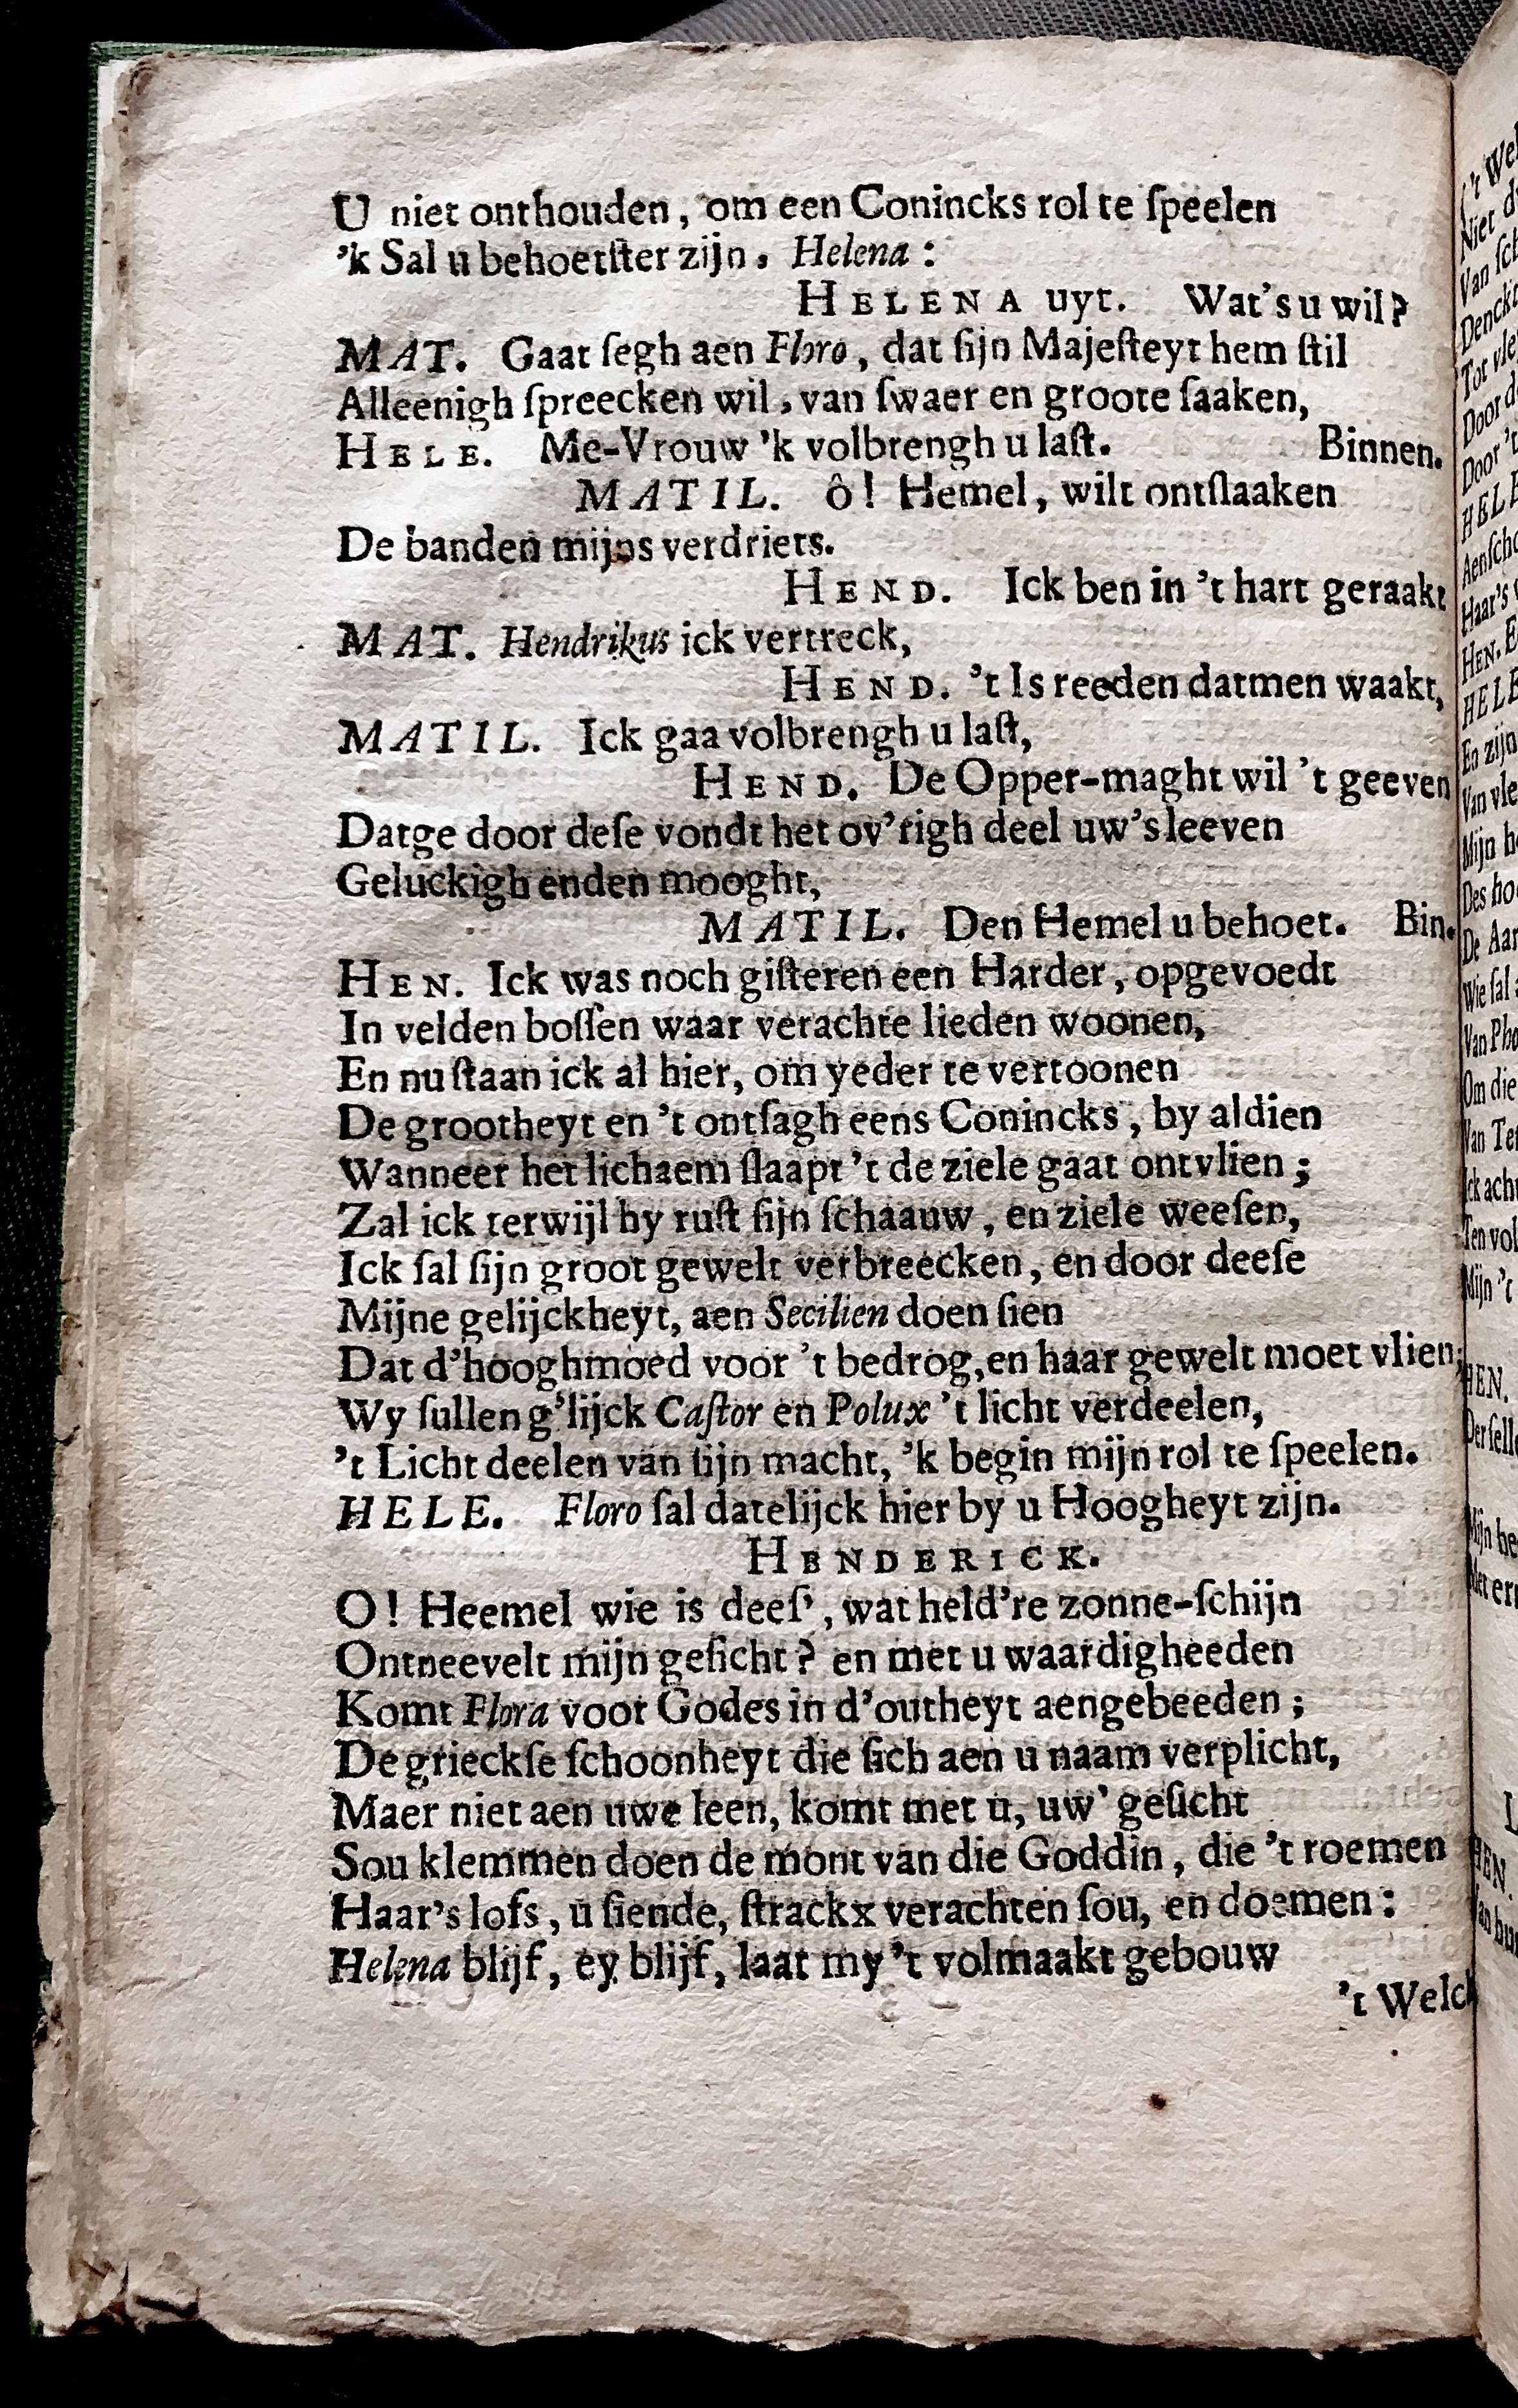 U niet onthouden, om een Conincks rol te ſpeelen
’k Sal u behoetſter zijn. Helena:
HELENA uyt. Wat’s u wil?
MAT. Gaat ſegh aen Floro, dat ſijn Majeſteyt hem ſtil
Alleenigh ſpreecken wil, van ſwaer en groote ſaaken,
HELE. Me-Vrouw ’k volbrengh u laſt. Binnen.
MATIL. ô! Hemel, wilt ontſlaaken
De banden mijns verdriets.
HEND. Ick ben in ’t hart geraakt
MAT. Hendrikus ick vertreck,
HEND. ’t Is reeden datmen waakt,
MATIL. Ick gaa volbrengh u laſt,
HEND. De Opper-maght wil ’t geeven
Datge door deſe vondt het ov’righ deel uw’s leeven
Geluckigh enden mooght,
MATIL. Den Hemel u behoet. Bin.
HEN. Ick was noch giſteren een Harder, opgevoedt
In velden boſſen waar verachte lieden woonen,
En nu ſtaan ick al hier, om yeder te vertoonen
De grootheyt en ’t ontſagh eens Conincks, by aldien
Wanneer het lichaem ſlaapt ’t de ziele gaat ontvlien;
Zal ick terwijl hy ruſt ſijn ſchaauw, en ziele weeſen,
Ick ſal ſijn groot gewelt verbreecken, en door deeſe
Mijne gelijckheyt, aen Secilien doen ſien
Dat d’hooghmoed voor ’t bedrog, en haar gewelt moet vlien;
Wy ſullen g’lijck Caſtor en Polux ’t licht verdeelen,
’t Licht deelen van ſijn macht, ’k begin mijn rol te ſpeelen.
HELE. Floro ſal datelijck hier by u Hoogheyt zijn.
HENDERICK.
O! Heemel wie is deeſ’, wat held’re zonne-ſchijn
Ontneevelt mijn geſicht? en met u waardigheeden
Komt Flora voor Godes in d’outheyt aengebeeden;
De grieckſe ſchoonheyt die ſich aen u naam verplicht,
Maer niet aen uwe leen, komt met u, uw’ geſicht
Sou klemmen doen de mont van die Goddin, die ’t roemen
Haar’s lofs, u ſiende, ſtrackx verachten ſou, en doemen:
Helena blijf, ey blijf, laat my ’t volmaakt gebouw
’t Welck